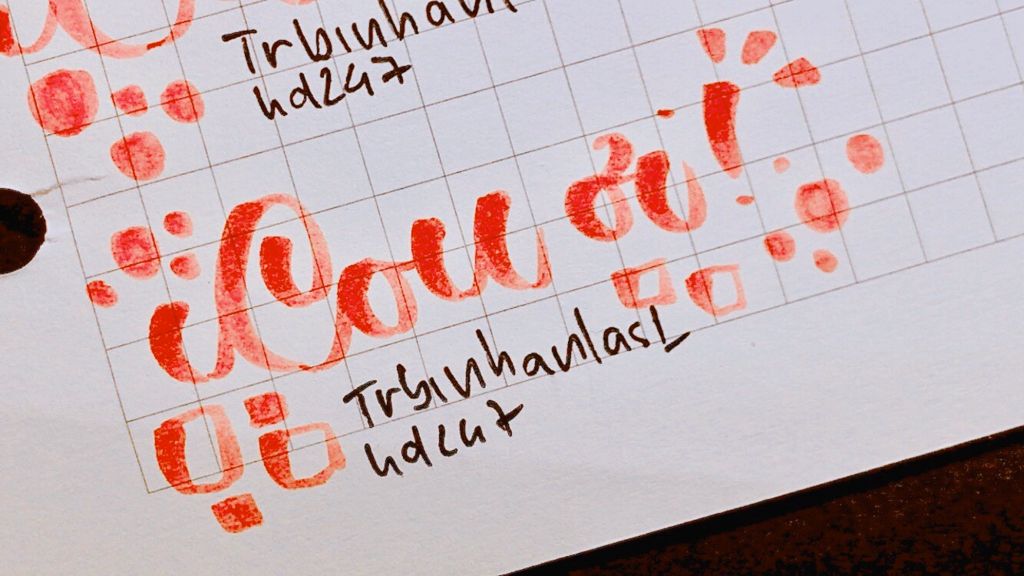 Trbinhanl
hd247
ơi!
Trbinhanlasl
hd247